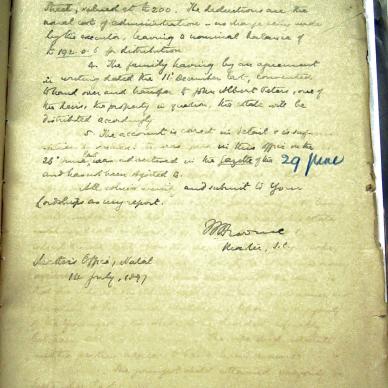 Street, valued at £200. The deductions are the
usual costs of administration - no charge being made
by the executor, leaving a nominal balance of
£192.0.6 for distribution
4. The family having by an agreement
in writing dated the 11th December last, consented
to hand over and transfer to John Albert Peters, one of
the heirs, the property in question, the estate will be
distributed accordingly
5. The account is correct in detail & is
in this office on the
25th June last, was advertised in the Gazette of the 29 June
and has not been objected to.
All which I certify and submit to Your
Lordships as my report.
Master, S.C.
Master's Office, Natal
14 July, 1897